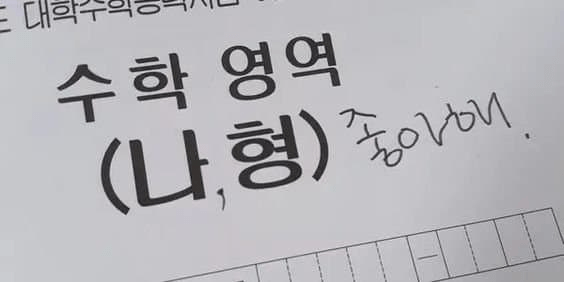 대학수학능력시험
수학 영역
(나,형) 좋아해.